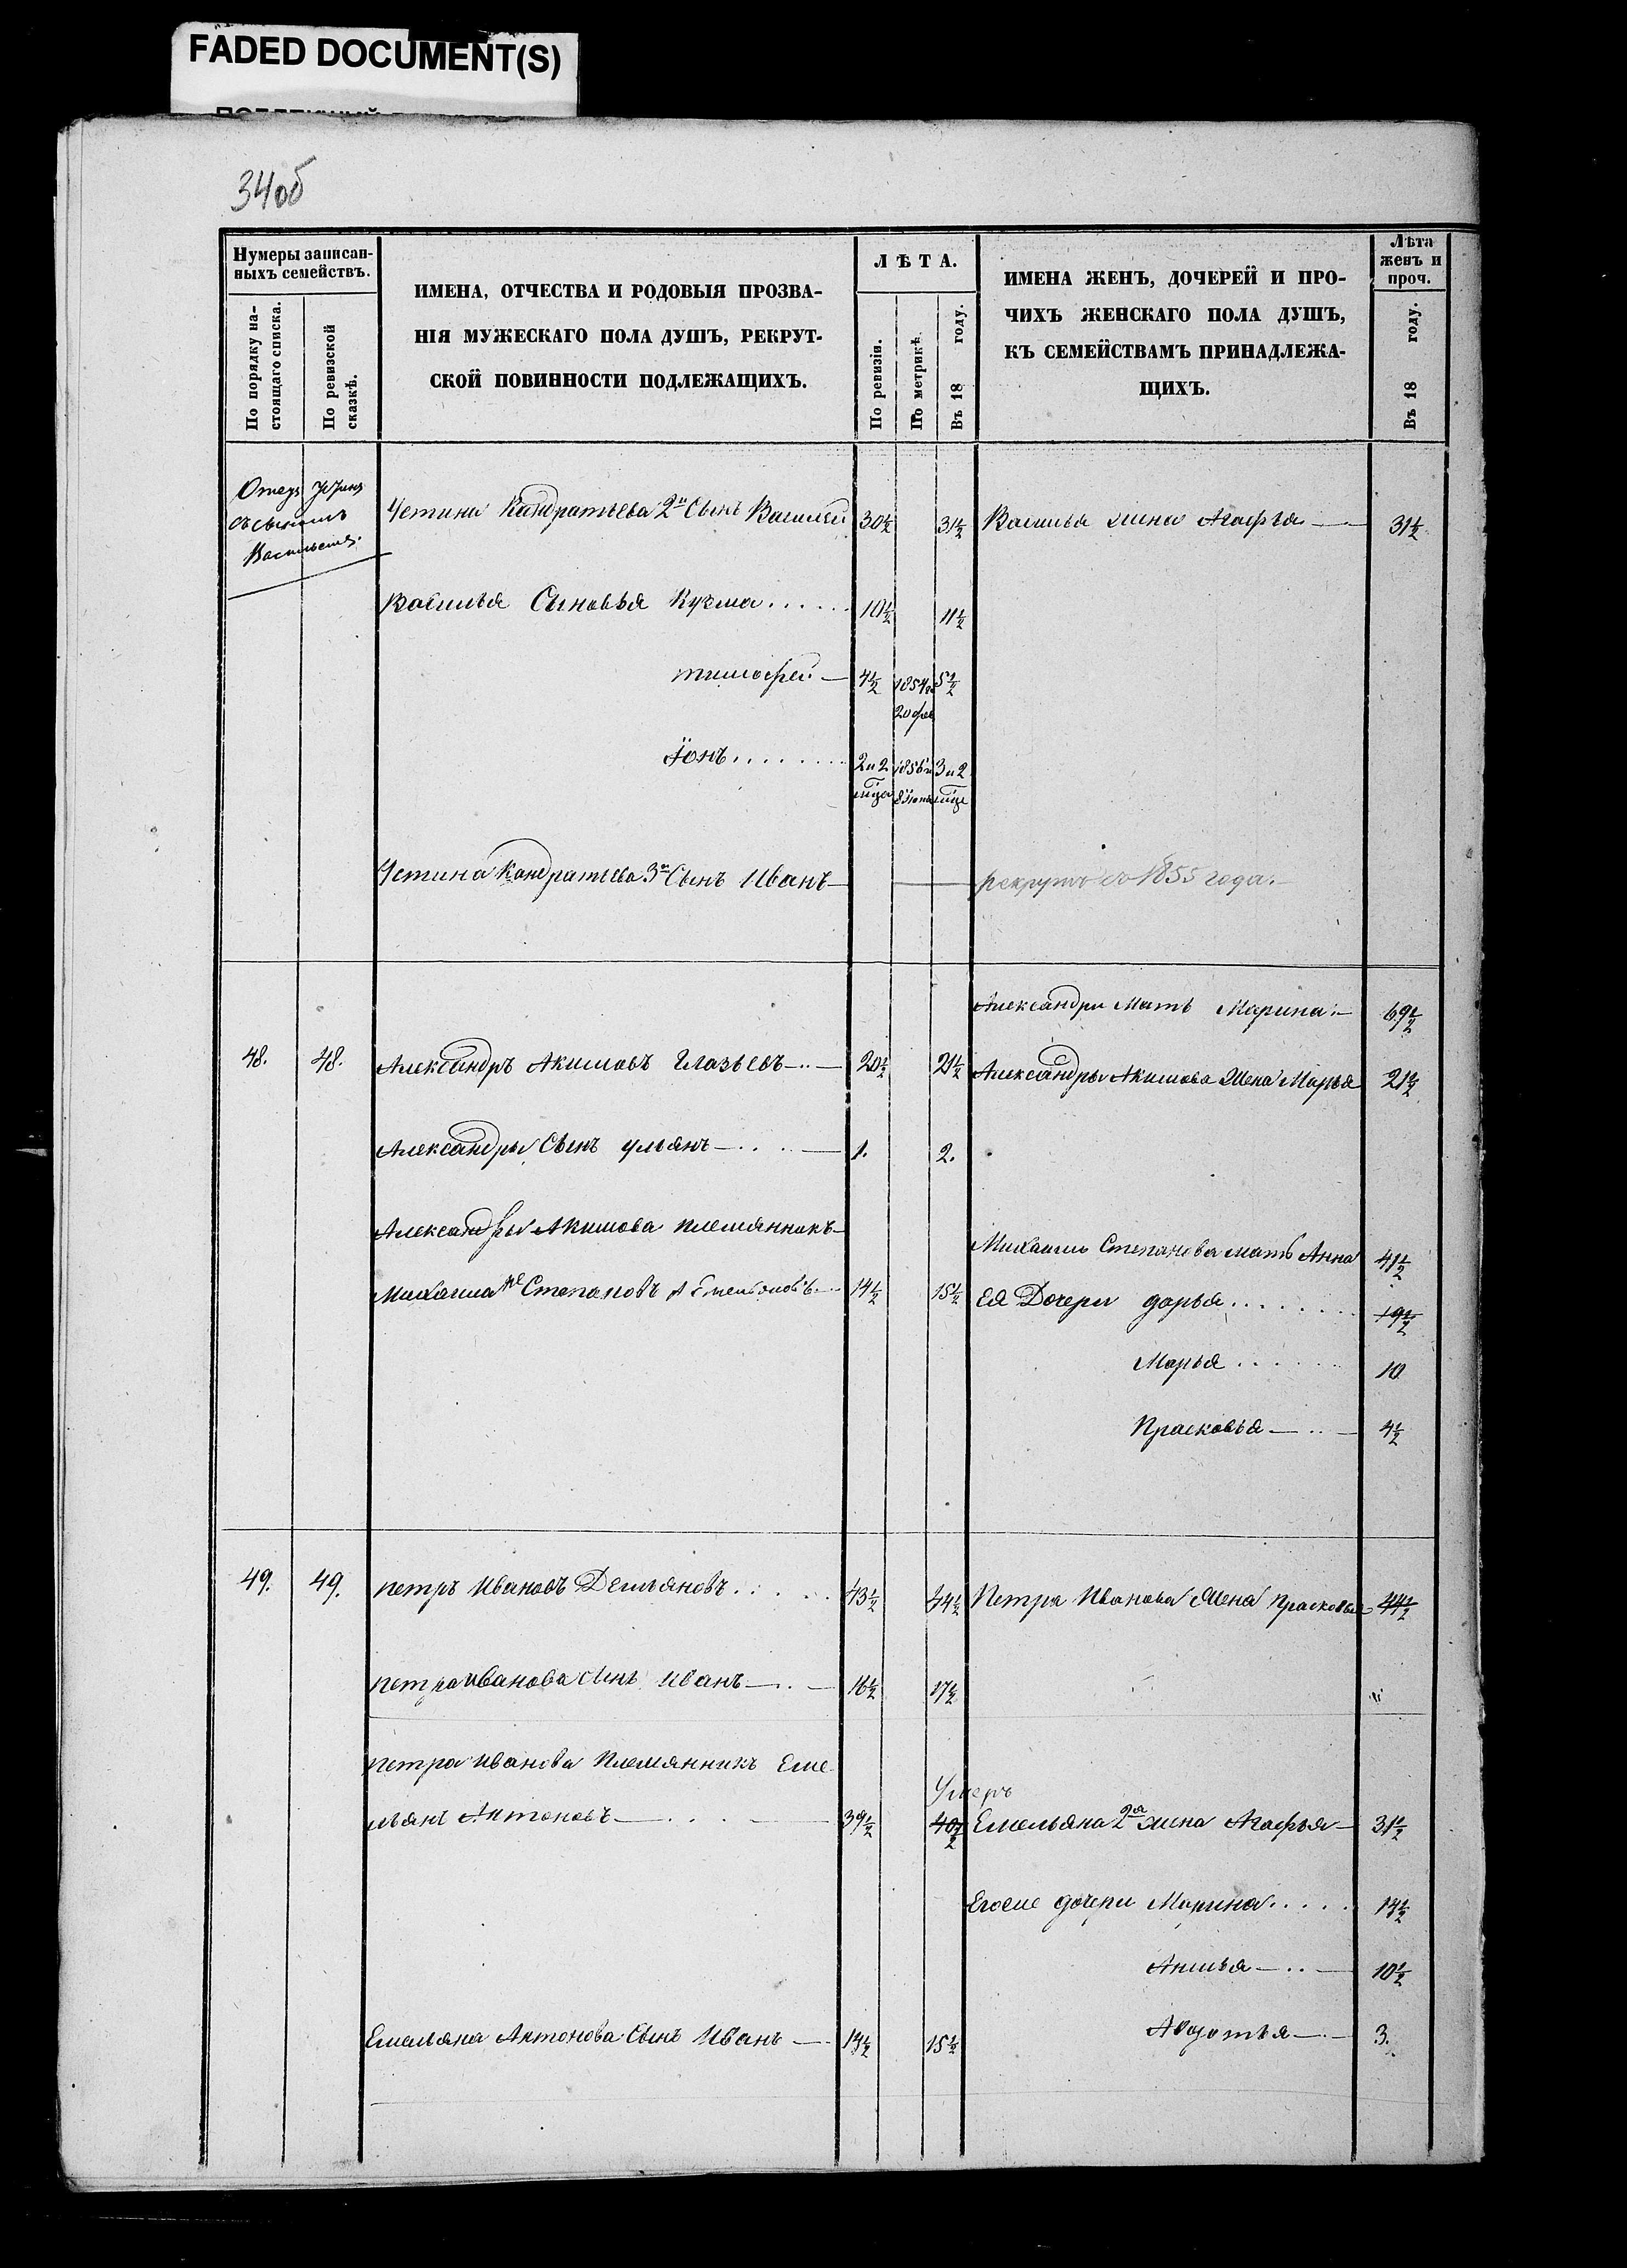 FADED DOCUMENT(S)
34об
Нумеры записан-
ныхъ семействъ.
По порядку на-
стоящаго списка.
По ревизской
сказкѣ.
ИМЕНА, ОТЧЕСТВА И РОДОВЫЯ ПРОЗВА-
НІЯ МУЖЕСКАГО ПОЛА ДУШЪ, РЕКРУТ-
СКОЙ ПОВИННОСТИ ПОДЛЕЖАЩИХЪ.
ЛѢТА.
По ревизіи.
По метрикѣ.
Въ 18 году.
ИМЕНА ЖЕНЪ, ДОЧЕРЕЙ И ПРО-
ЧИХЪ ЖЕНСКАГО ПОЛА ДУШЪ,
КЪ СЕМЕЙСТВАМЪ ПРИНАДЛЕЖА-
ЩИХЪ.
Лѣта
женъ и
проч.
Въ 18 году.
Отецъ Устинъ
съ сыномъ
Васильемъ.
Устина Кандратьева 2й Сынъ Василей 30½ 31½ Василья жена Агафья 31½
Василья Сыновья Кузма 10½ 11½
тимофей 4½ 1854 5½
20 фев
Іонъ 2 и 2 1856 3 и 2
мца мца
Устина Кандратьева 3й Сынъ Иванъ рекрутъ съ 1855 года.
Александры Мать Марина 69½
48. 48. Александръ Акимовъ Глазьевъ 20½ 21½ Александры Акимова Жена Марья 21½
Александры Сынъ ульянъ 1. 2.
Александры Акимова племянникъ
Михаила Степанова мать Анна 41½
Михаила Степановъ Емельяновъ 14½ 15½ Ея Дочери дарья 19½
Марья 10
Прасковья 4½
49. 49. петръ Ивановъ Демьяновъ 43½ 44½ Петра Иванова Жена прасковья 44½
петра Иванова сынъ Иванъ 16½ 17½
петра Иванова Племянникъ Еме
Умеръ
льянъ Антоновъ 39½ 40½ Емельяна 2я жена Агафья 31½
Егоеже дочери Марина 14½
Анисья 10½
Емельяна Антонова Сынъ Иванъ 14½ 15½ Авдотья 3.